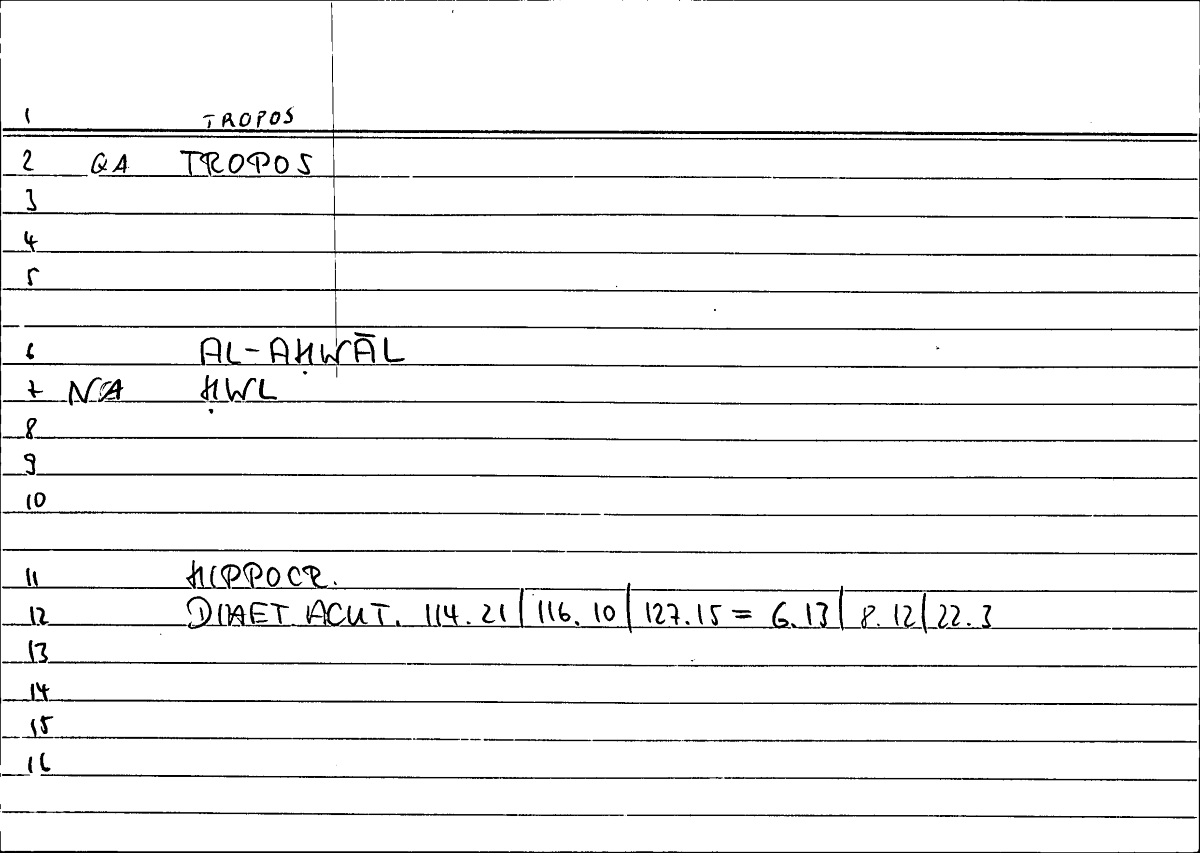 1 TROPOS
2 QA TROPOS
3
4
5
6 AL-AḤWĀL
7 NA ḤWL
8
9
10
11 HIPPOCR.
12 DIAET ACUT. 114.21 | 116.10 | 127.15 = 6.13 | 8.12 | 22.3
13
14
15
16